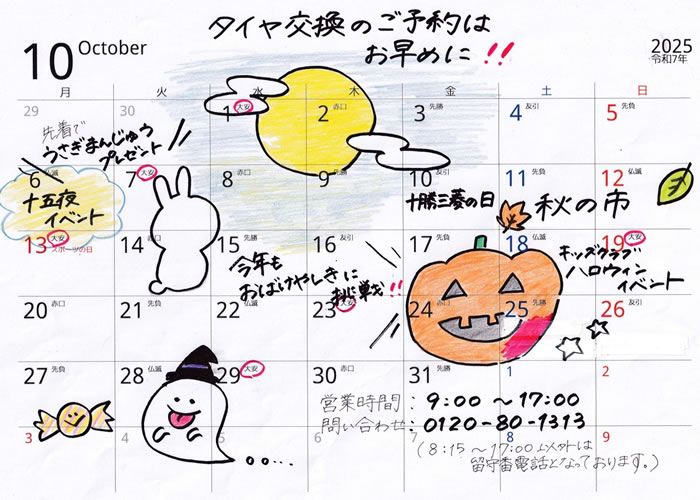 タイヤ交換のご予約は
お早めに!!
10 October
2025
令和7年
月 火 水 木 金 土 日
29 30 1大安 2赤口 3先勝 4友引 5先負
先着で
うさぎまんじゅう
プレゼント
6仏滅 7大安 8赤口 9先勝 10 11先負 12仏滅
十五夜
イベント
十勝三菱の日
秋の市
13大安 14赤口 15先勝 16友引 17 18仏滅 19大安
スポーツの日
今年も
おばけやしきに
挑戦!!
キッズクラブ
ハロウィン
イベント
20赤口 21先負 22仏滅 23大安 24 25先勝 26友引
27先負 28仏滅 29大安 30赤口 31先勝 1 2
営業時間:9:00〜17:00
問い合わせ:0120-80-1313
(8:15〜17:00以外は
留守番電話となっております。)
3 4 5 8 9